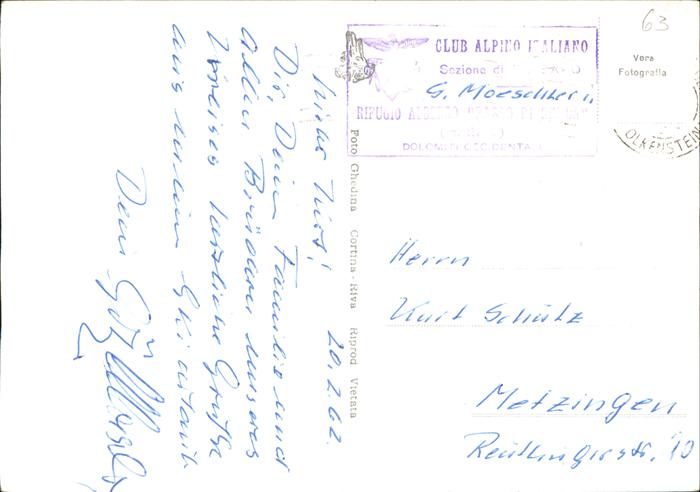 63
CLUB ALPINO ITALIANO
Sezione di
G. Moeschler i.
RIFUGIO ALBERGO
DOLOMITI OCCIDENTALI
Vera
Fotografia
OLKENSTEIN
Foto Ghedina Cortina - Riva Riprod Vietata
20.2.62
Lieber Kurt!
Dir, Deiner Familie und
allen Brüdern unseres
Kreises herzliche Grüße
aus meinem Skiurlaub
Dein Götz
Herrn
Kurt Schütz
Metzingen
Reutlingerstr. 10